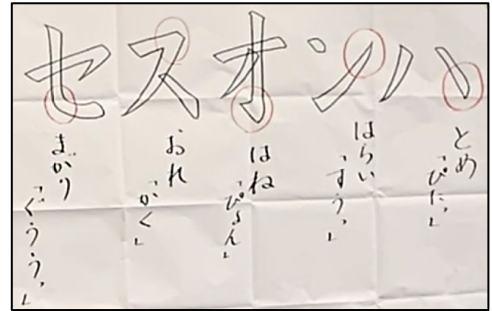 セスオンハ
とめ
「ぴたっ」
はらい
「すうっ」
はね
「ぴょん」
おれ
「かく」
まがり
「ぐううっ」